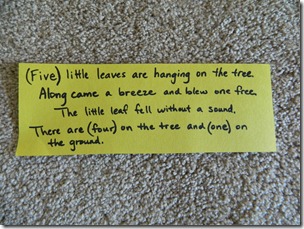 (Five) little leaves are hanging on the tree.
Along came a breeze and blew one free.
The little leaf fell without a sound.
There are (four) on the tree and (one) on
the ground.